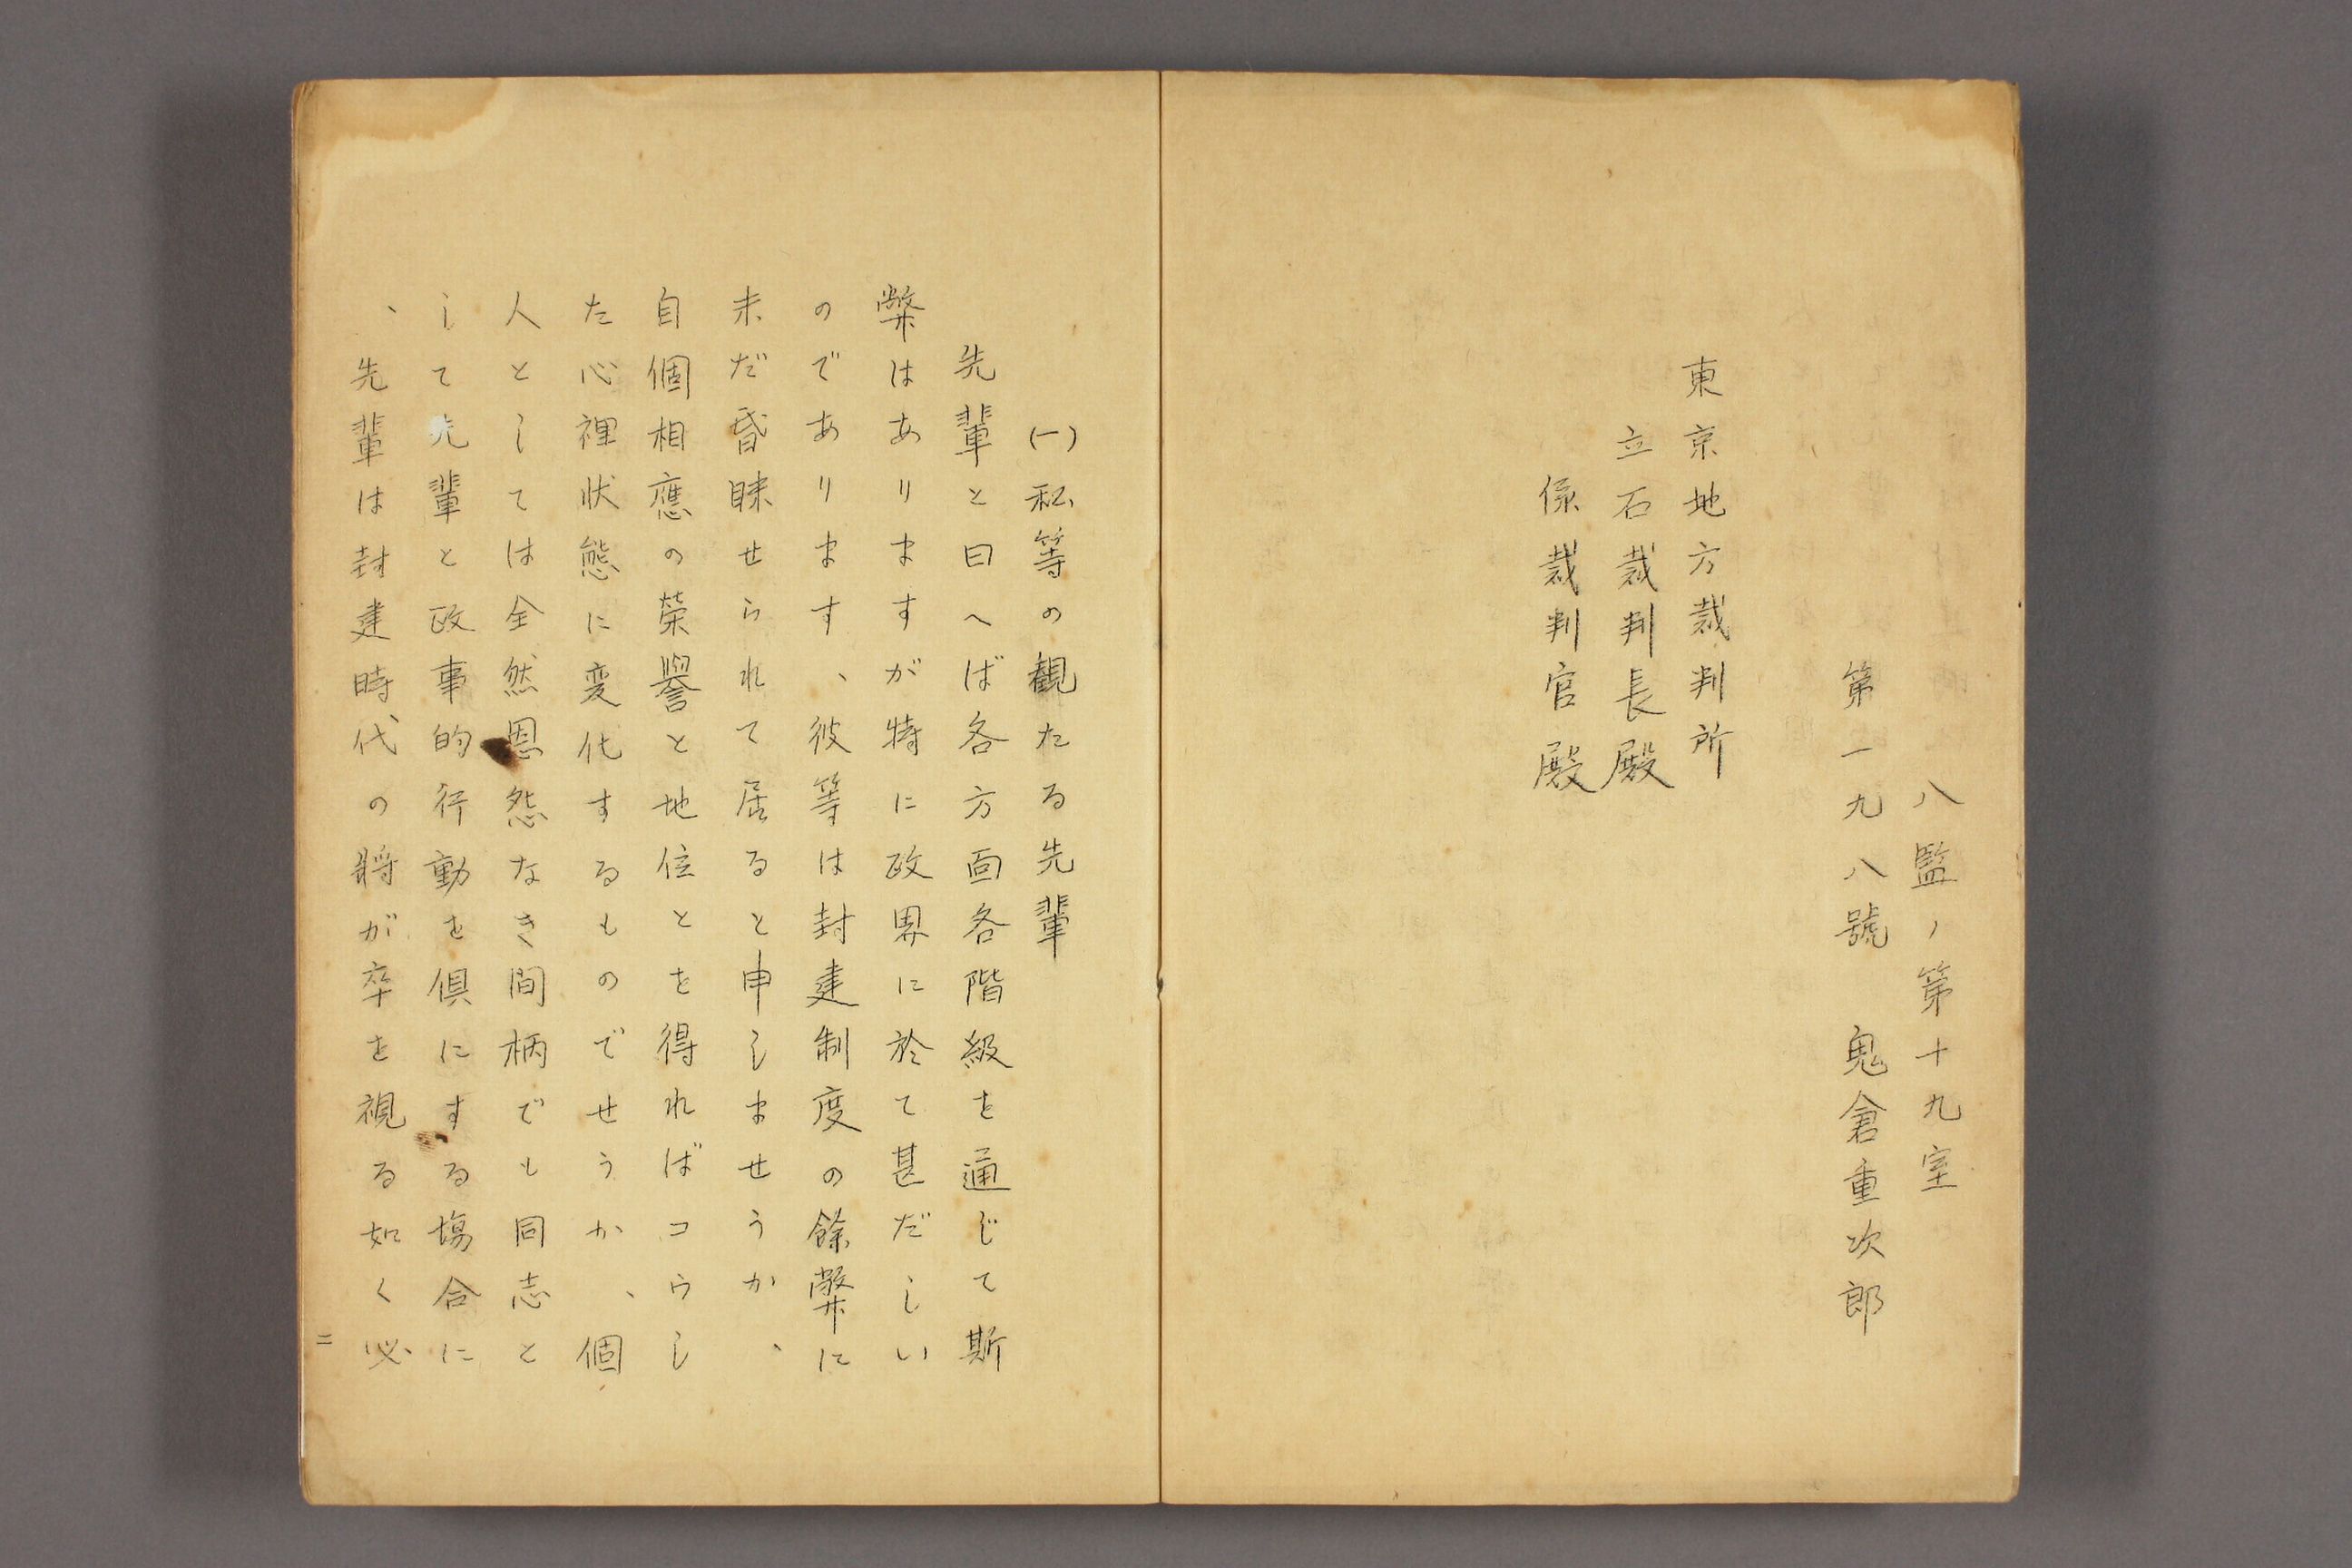 八監ノ第十九室
第一九八號　鬼倉重次郎
東京地方裁判所
立石裁判長殿
係裁判官殿
(一)私等の観たる先輩
先輩と曰へば各方面各階級を通じて斯
弊はありますが特に政界に於て甚だしい
のであります、彼等は封建制度の餘弊に
未だ昏昧せられて居ると申しませうか、
自個相應の榮譽と地位とを得ればコウし
た心裡状態に変化するものでせうか、個
人としては全然恩怨なき間柄でも同志と
して先輩と政事的行動を倶にする場合に
、先輩は封建時代の将が卒を視る如く必
二